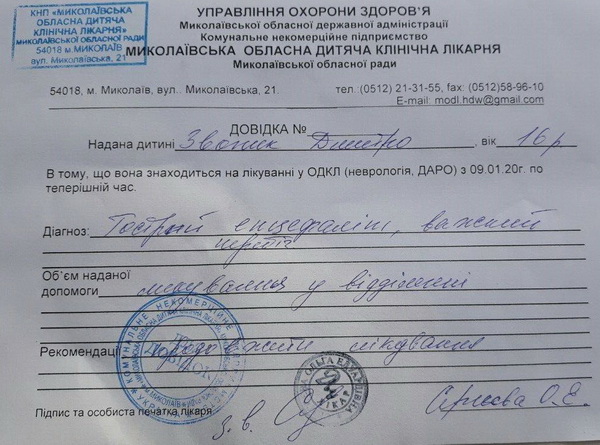 КНП «МИКОЛАЇВСЬКА
ОБЛАСНА ДИТЯЧА
КЛІНІЧНА ЛІКАРНЯ»
МИКОЛАЇВСЬКОЇ ОБЛАСНОЇ РАДИ
54018 м. МИКОЛАЇВ
вул. Миколаївська, 21
УПРАВЛІННЯ ОХОРОНИ ЗДОРОВ'Я
Миколаївської обласної державної адміністрації
Комунальне некомерційне підприємство
МИКОЛАЇВСЬКА ОБЛАСНА ДИТЯЧА КЛІНІЧНА ЛІКАРНЯ
Миколаївської обласної ради
54018, м. Миколаїв, вул.. Миколаївська, 21. тел.:(0512) 21-31-55, fax: (0512)58-96-10
E-mail: modl.hdw@gmail.com
ДОВІДКА №
Надана дитині Дмитро, вік 16 р.
В тому, що вона знаходиться на лікуванні у ОДКЛ (неврологія, ДАРО) з 09.01.20г. по
теперішній час.
Діагноз: Гострий енцефаліт, важкий
перебіг
Об'єм наданої
допомоги лікування у відділенні
Рекомендації продовжити лікування
Підпис та особиста печатка лікаря